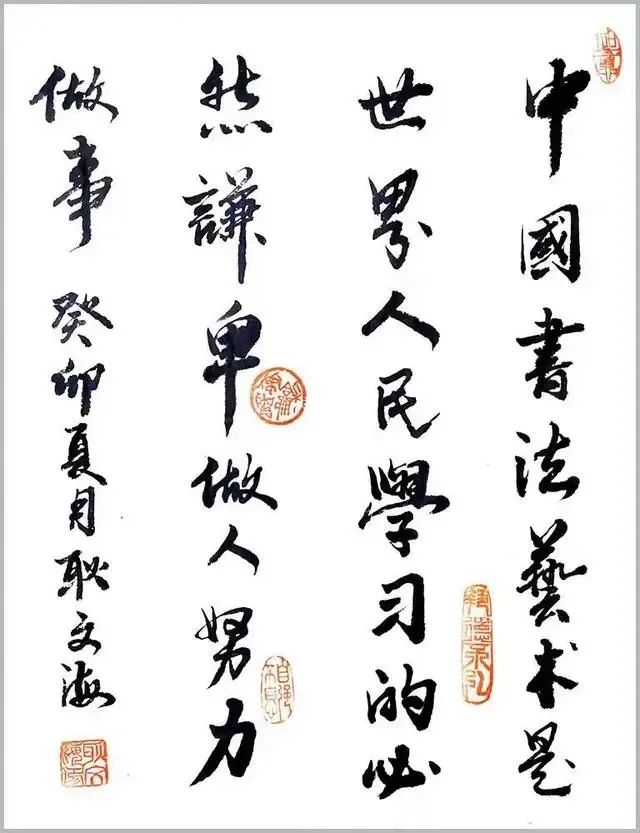 中國書法藝术是
世界人民學习的必
然謙卑做人努力
做事 癸卯夏月耿文海